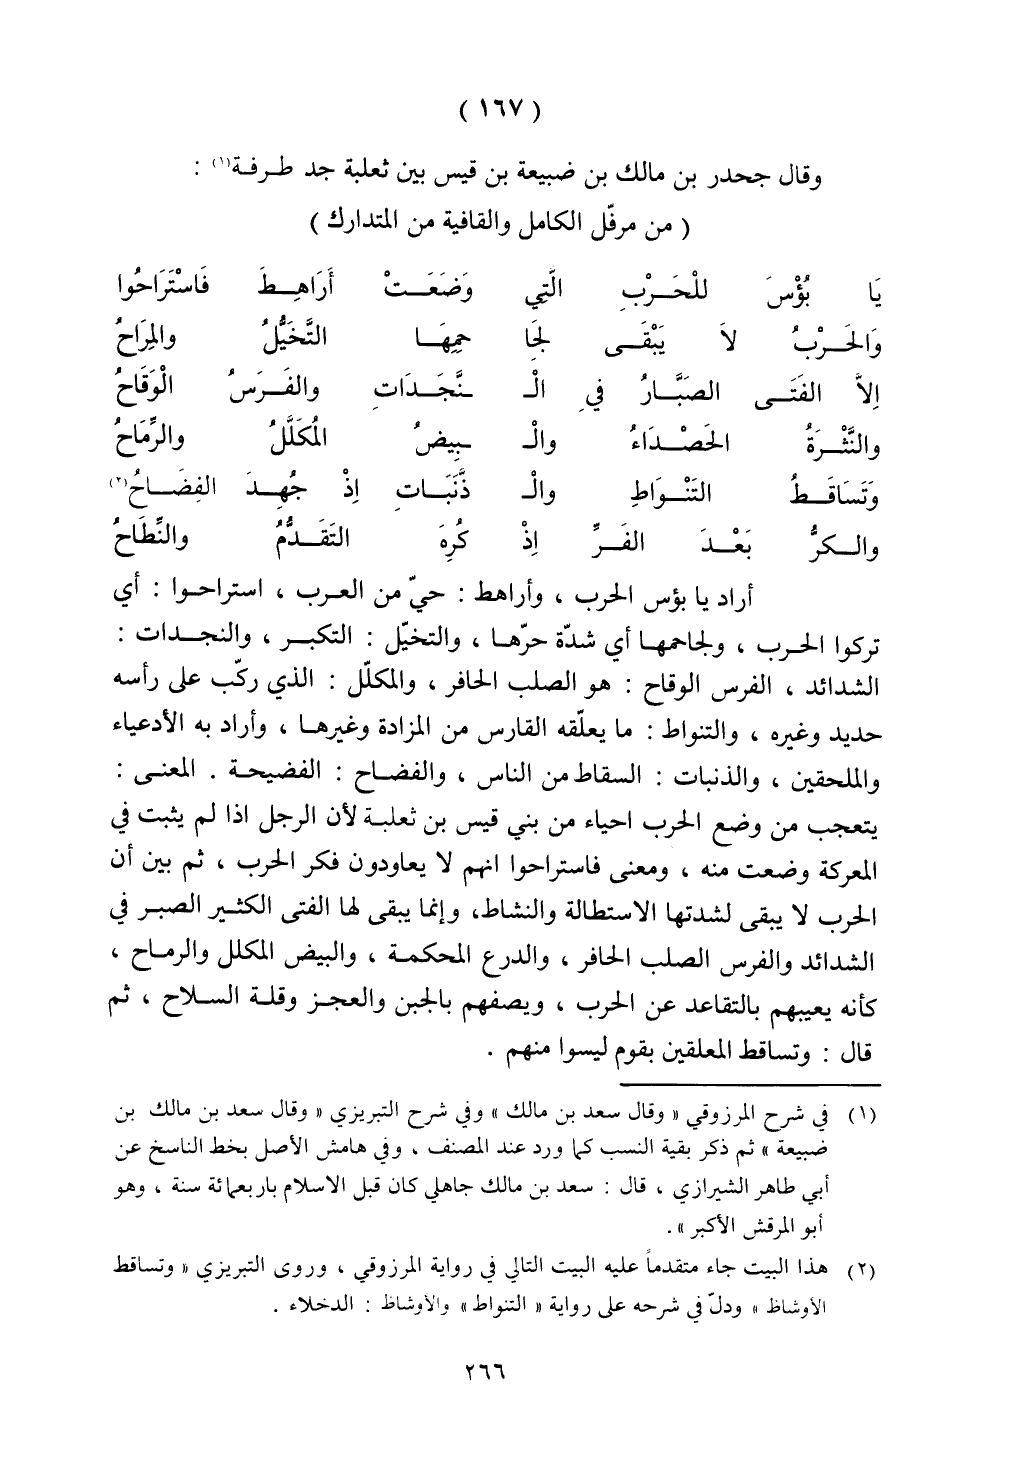 ( ١٦٧ )
وقال جحدر بن مالك بن ضبيعة بن قيس بين ثعلبة جد طرفة(١) :
( من مرفّل الكامل والقافية من المتدارك )
يَا بُؤْسَ للْحَرْبِ الَّتِي وَضَعَتْ أَرَاهِطَ فَاسْتَرَاحُوا
وَالحَرْبُ لاَ يَبْقَى لِجَا حِمِهَا التَّخَيُّلُ والمِرَاحُ
إِلاَّ الفَتَى الصَبَّارُ في الْـ ـنَّجَدَاتِ والفَرَسُ الْوَقَاحُ
والنَّثْرَةُ الحَصْدَاءُ والْـ ـبِيضُ المُكَلَّلُ والرِّمَاحُ
وَتَسَاقَطُ التَنْوَاطِ والْـ ذَّنَبَاتِ إِذْ جُهِدَ الفِضَاحُ(٢)
والكرُّ بَعْدَ الفَرِّ إِذْ كُرِهَ التَقَدُّمُ والنِّطَاحُ
أراد يا بؤس الحرب ، وأراهط : حيّ من العرب ، استراحوا : أي
تركوا الحرب ، ولجاحمها أي شدّة حرّها ، والتخيّل : التكبر ، والنجدات :
الشدائد ، الفرس الوقاح : هو الصلب الحافر ، والمكلّل : الذي ركّب على رأسه
حديد وغيره ، والتنواط : ما يعلّقه القارس من المزادة وغيرها ، وأراد به الأدعياء
والملحقين ، والذنبات : السقاط من الناس ، والفضاح : الفضيحة . المعنى :
يتعجب من وضع الحرب احياء من بني قيس بن ثعلبة لأن الرجل اذا لم يثبت في
المعركة وضعت منه ، ومعنى فاستراحوا انهم لا يعاودون فكر الحرب ، ثم بين أن
الحرب لا يبقى لشدتها الاستطالة والنشاط، وإنما يبقى لها الفتى الكثير الصبر في
الشدائد والفرس الصلب الحافر ، والدرع المحكمة ، والبيض المكلل والرماح ،
كأنه يعيبهم بالتقاعد عن الحرب ، ويصفهم بالجبن والعجز وقلة السلاح ، ثم
قال : وتساقط المعلقين بقوم ليسوا منهم .
(١) في شرح المرزوقي « وقال سعد بن مالك » وفي شرح التبريزي « وقال سعد بن مالك بن
ضبيعة » ثم ذكر بقية النسب كما ورد عند المصنف ، وفي هامش الأصل بخط الناسخ عن
أبي طاهر الشيرازي ، قال : سعد بن مالك جاهلي كان قبل الاسلام باربعمائة سنة ، وهو
أبو المرقش الأكبر » .
(٢) هذا البيت جاء متقدماً عليه البيت التالي في رواية المرزوقي ، وروى التبريزي « وتساقط
الأوشاظ » ودلّ في شرحه على رواية « التنواط » والأوشاظ : الدخلاء .
٢٦٦